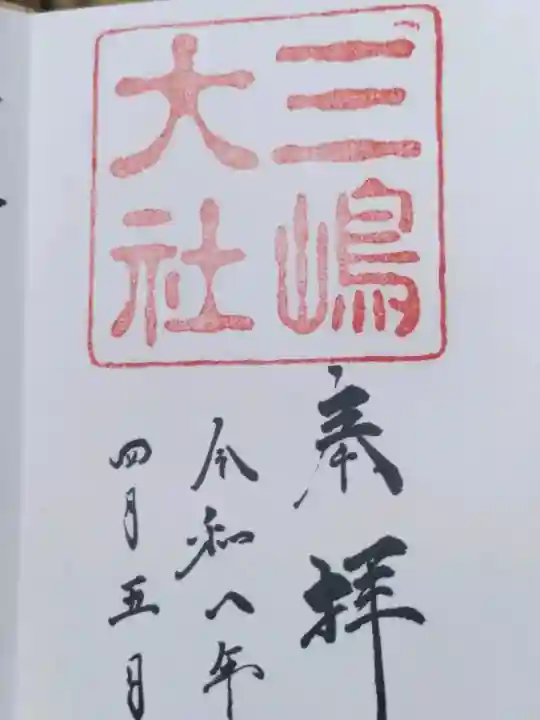 三嶋
大社
奉拝
令和八年
四月五日